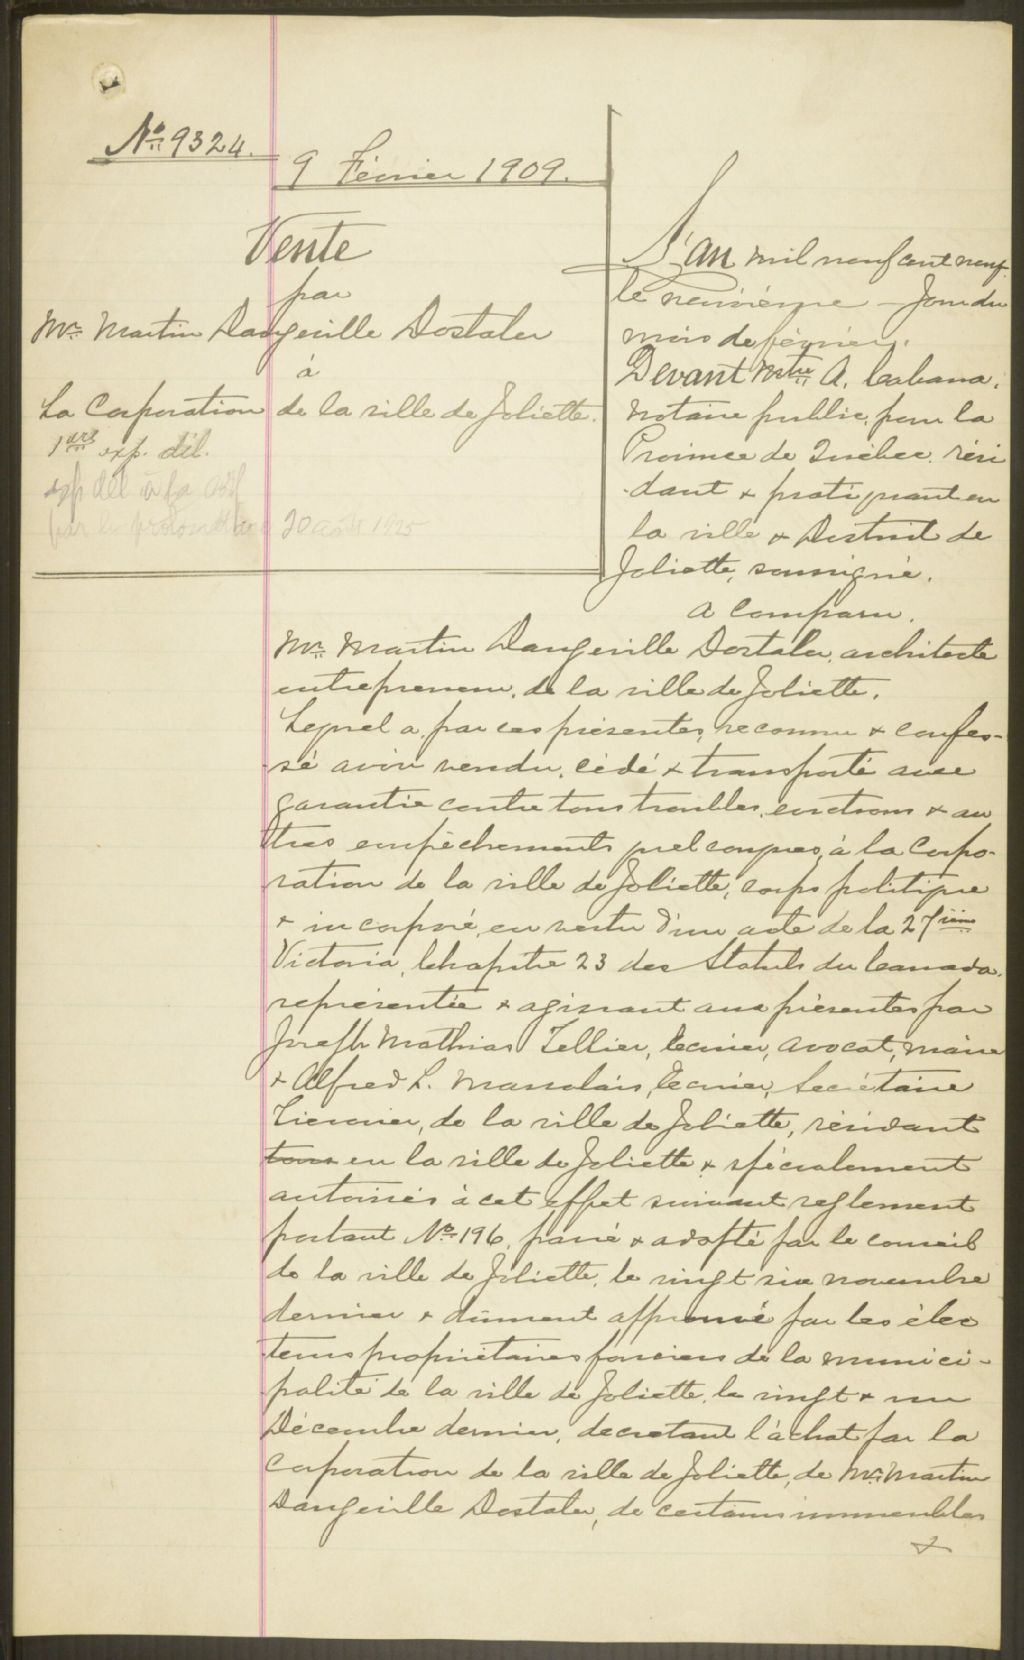 No 9324.
9 Février 1909.
Vente
par
Mr. Martin Dangeville Dostaler
à
La Corporation de la ville de Joliette.
1ère exp. dél.
exp dél à la
par le 20 août 1925
L'an mil neuf cent neuf.
le neuvième – Jour du
mois de février.
Devant Mtre A. Cabana,
Notaire public, pour la
Province de Québec. rési
dant & pratiquant en
la ville & District de
Joliette, soussigné.
A Comparu.
Mr. Martin Dangeville Dostaler, architecte
entrepreneur, de la ville de Joliette.
Lequel a, par ces présentes, reconnu & confes-
sé avoir vendu, cédé & transporté avec
garantie contre tous troubles, evictions & au
tres empêchements quelconques, à la Corpo-
ration de la ville de Joliette, corps politique
& incorporé, en vertu d'un acte de la 27ième
Victoria, Chapitre 23 des Statuts du Canada.
représentée & agissant aux présentes par
Joseph Mathias Tellier, Ecuier, avocat, maire
& Alfred L. Marsolais, Ecuier, Secrétaire
Trésorier, de la ville de Joliette, résidant
tous en la ville de Joliette & spécialement
autorisés à cet effet suivant reglement
portant No. 196, passé & adopté par le conseil
de la ville de Joliette, le vingt six novembre
dernier & dûment approuvé par les élec
teurs propriétaires fonciers de la munici-
palité de la ville de Joliette, le vingt & un
Décembre dernier, decretant l'achat par la
Corporation de la ville de Joliette, de Mr. Martin
Dangeville Dostaler, de certains immeubles
&